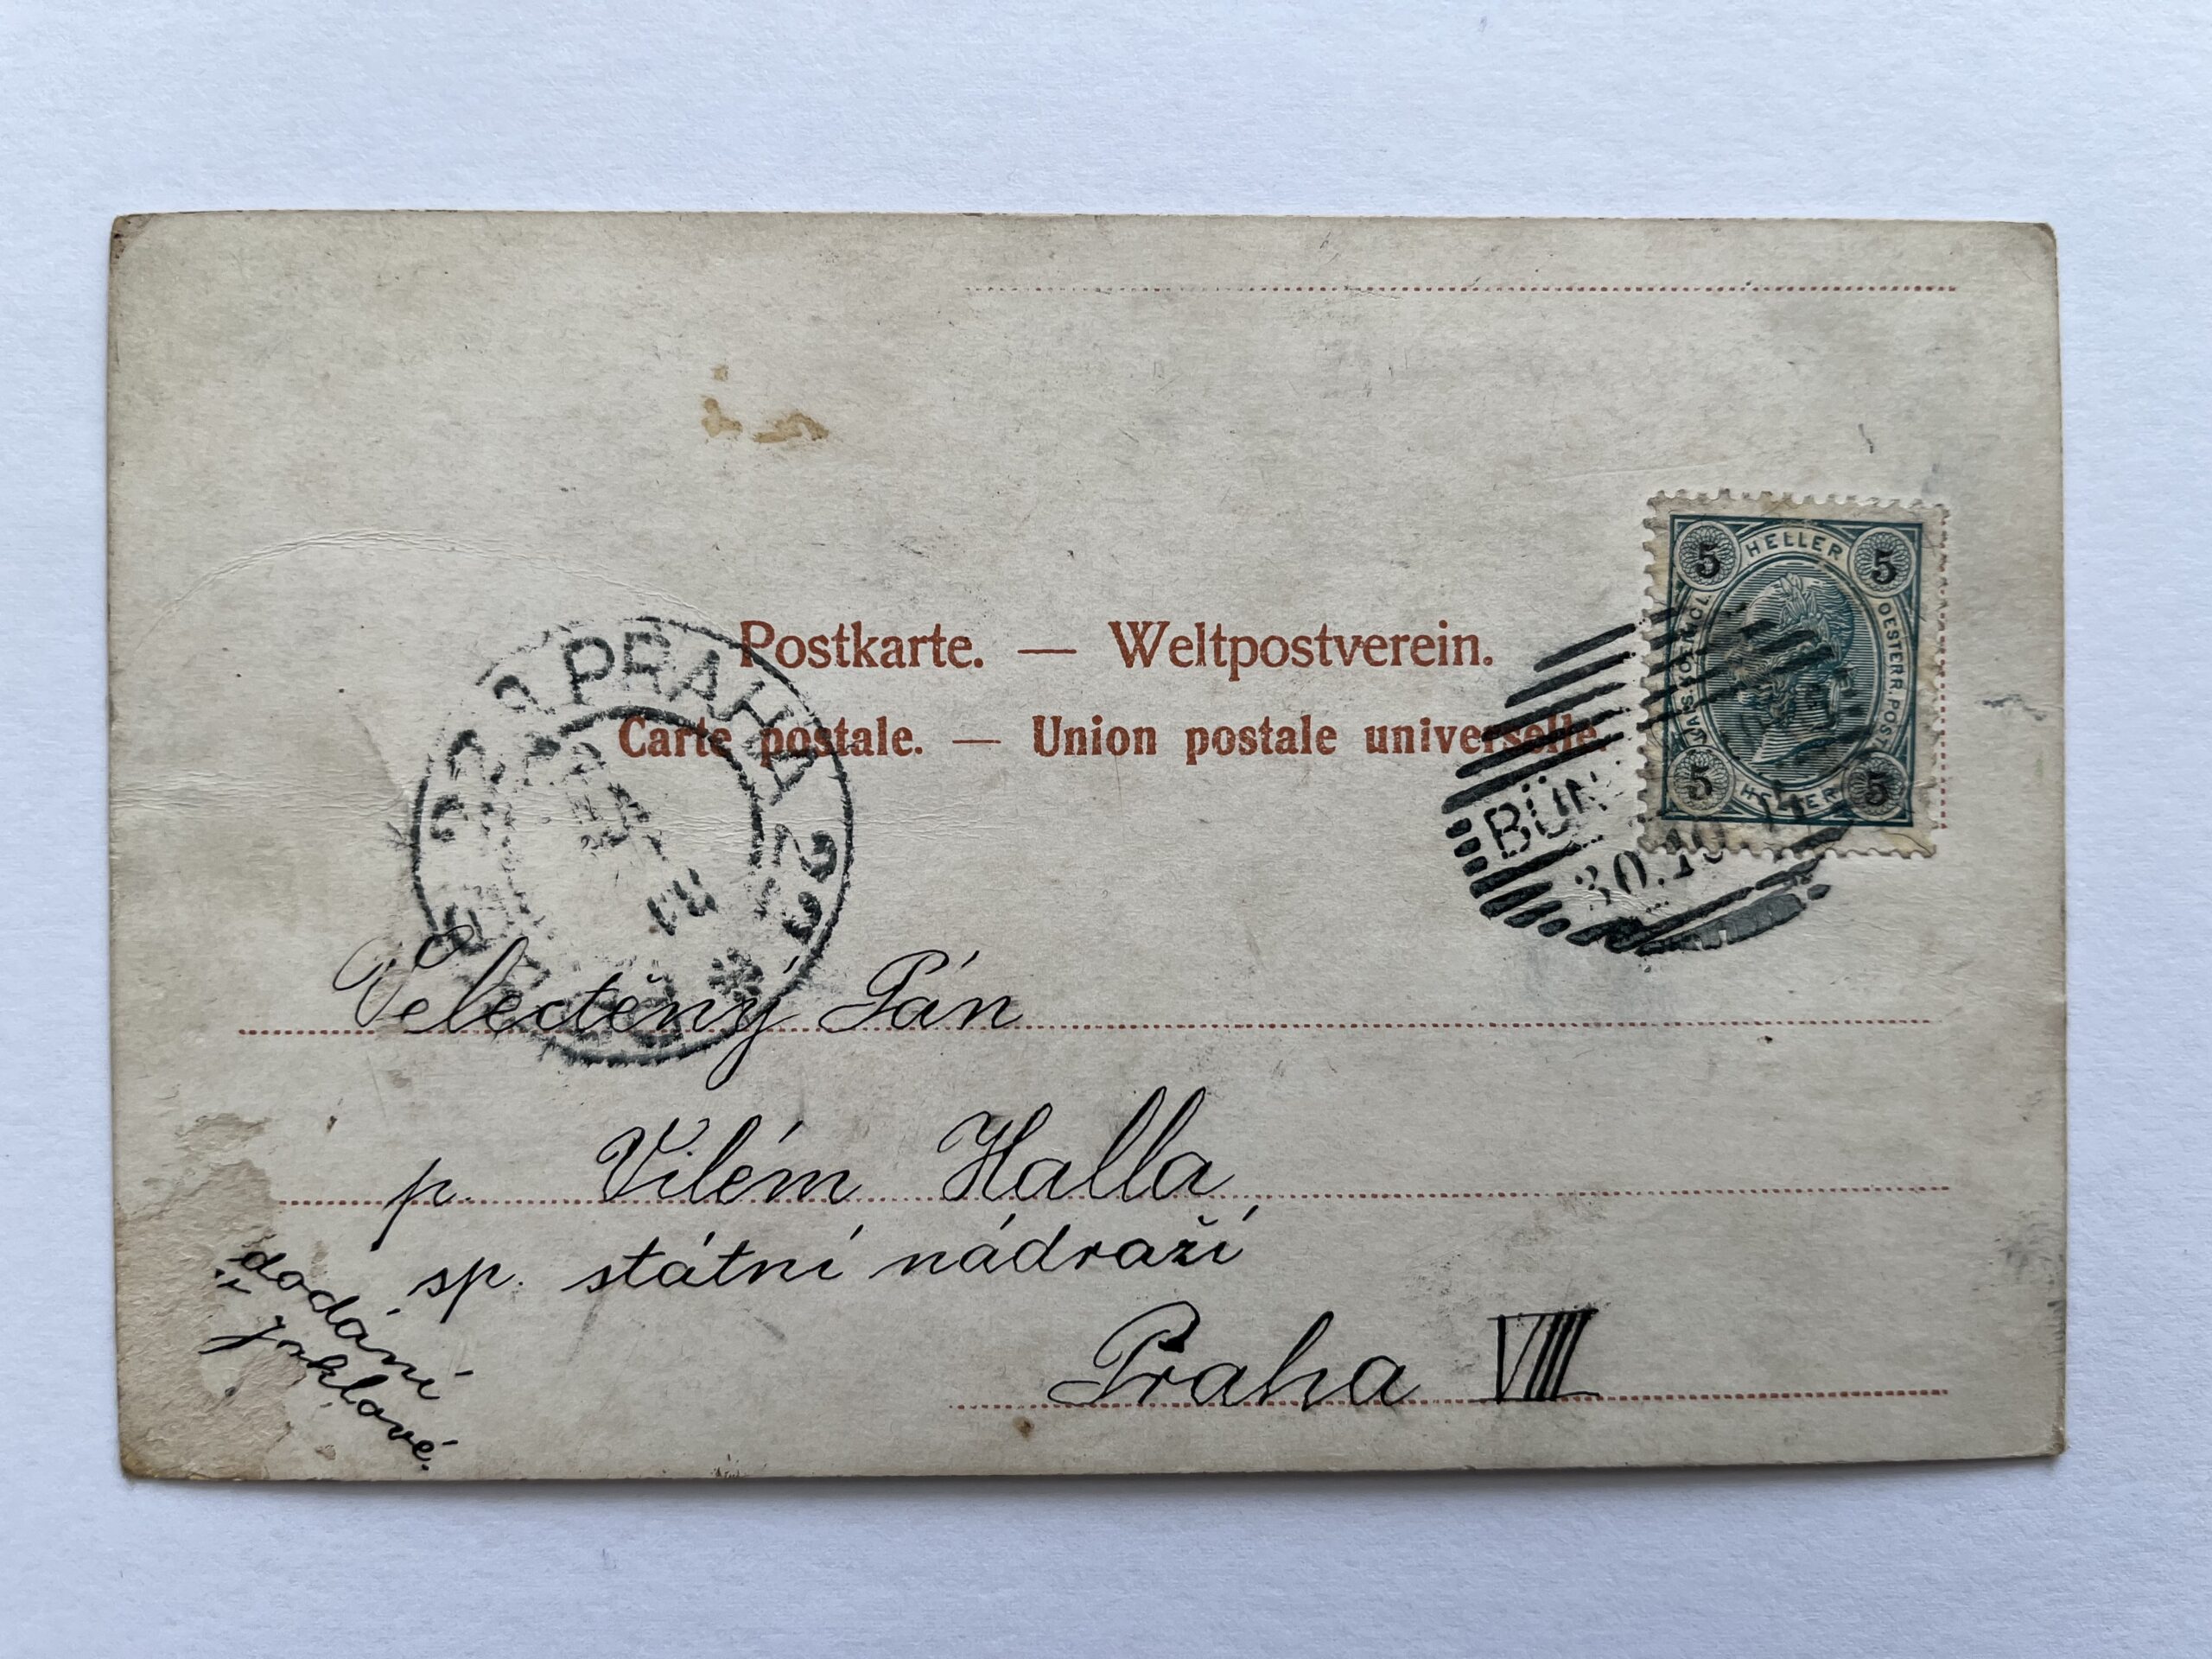 Postkarte. — Weltpostverein.
Carte postale. — Union postale universelle.
5 HELLER 5
KAIS. KOENIGL. OESTERR. POST
5 HELLER 5
BÜN
30.10
PRAHA
Velectěný Pán
p. Vilém Halla
sp. státní nádraží
Praha VIII
dodání